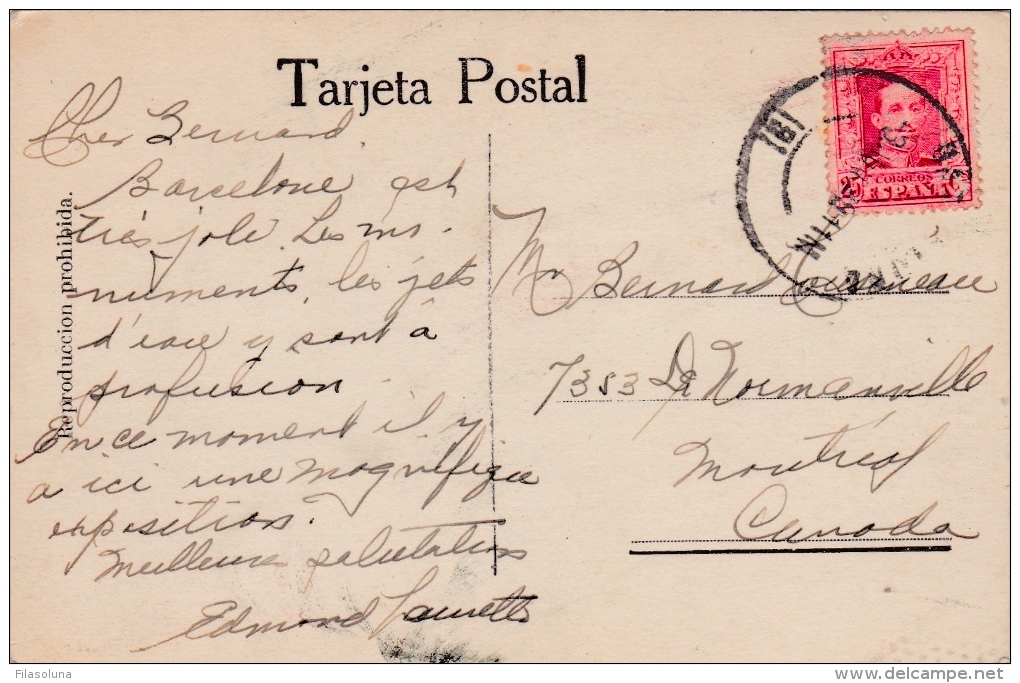 Tarjeta Postal
Reproduccion prohibida.
Cher Bernard,
Barcelone est
très joli. Les mo-
numents, les jets
d'eau y sont à
profusion.
En ce moment il y
a ici une magnifique
exposition.
Meilleures salutations
Edmond
Mr Bernard
7383 De Normanville
Montréal
Canada
CORREOS
ESPAÑA
Filasoluna
delcampe.net